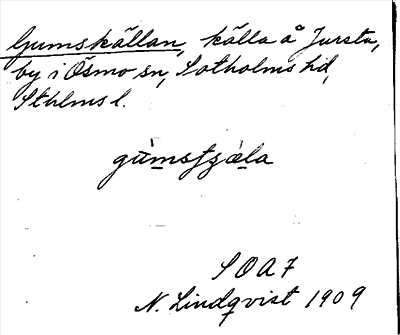 Gumskällan, källa å Jursta,
by i Ösmo sn, Sotholms hd,
Sthlms l.
gùmsʃʒæ̀la
SOA 7
N. Lindqvist 1909